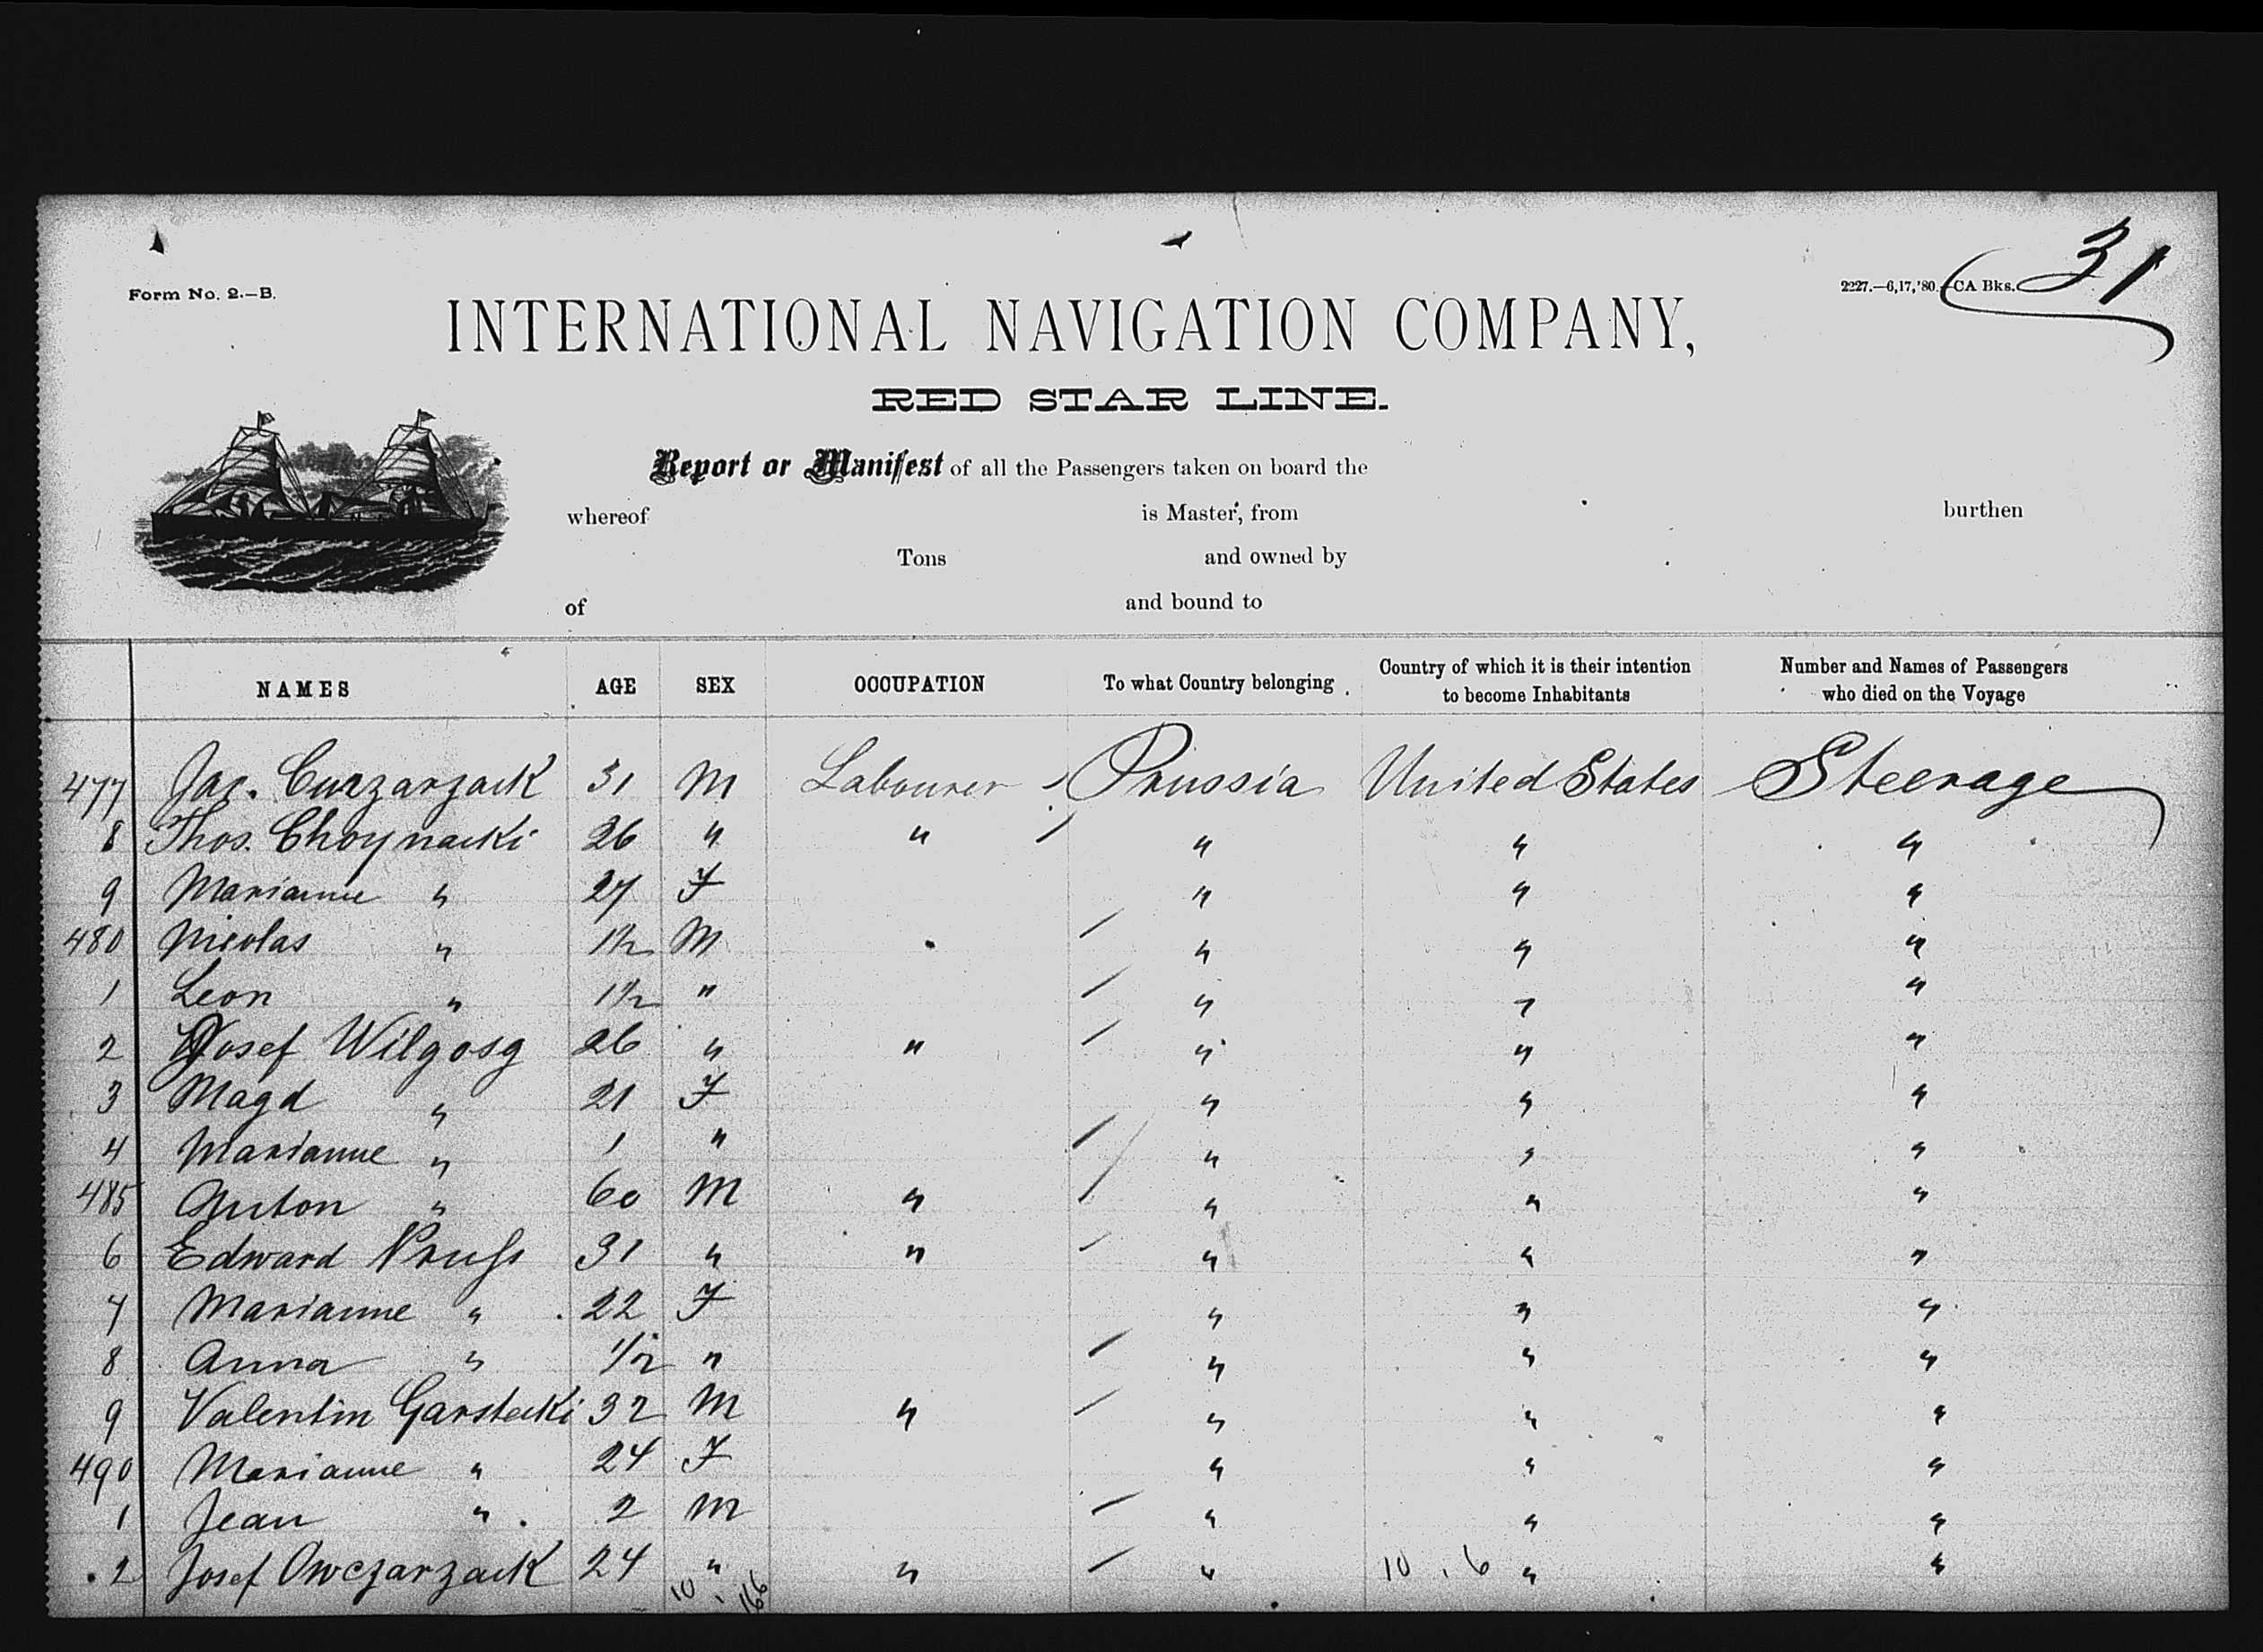 31
Form No. 2.—B.
2227.—6,17,'80.—CA Bks.
INTERNATIONAL NAVIGATION COMPANY,
RED STAR LINE.
Report or Manifest of all the Passengers taken on board the
whereof is Master, from burthen
Tons and owned by
of and bound to
NAMES AGE SEX OCCUPATION To what Country belonging Country of which it is their intention to become Inhabitants Number and Names of Passengers who died on the Voyage
477 Jac. Curzarzack 31 M Labourer Prussia United States Steerage
8 Thos. Choynacki 26 " " " " "
9 Marianne " 27 F " " "
480 Nicolas " 1½ M " " "
1 Leon " 1½ " " " "
2 Josef Wilgosg 26 " " " " "
3 Magd " 21 F " " "
4 Marianne " 1 " " " "
485 Anton " 60 M " " " "
6 Edward Pruss 31 " " " " "
7 Marianne " 22 F " " "
8 Anna " 1/2 " " " "
9 Valentin Garstecki 32 M " " " "
490 Marianne " 24 F " " "
1 Jean " 2 M " " "
2 Josef Owczarzack 24 " " " 10 . 6 " "
10
166